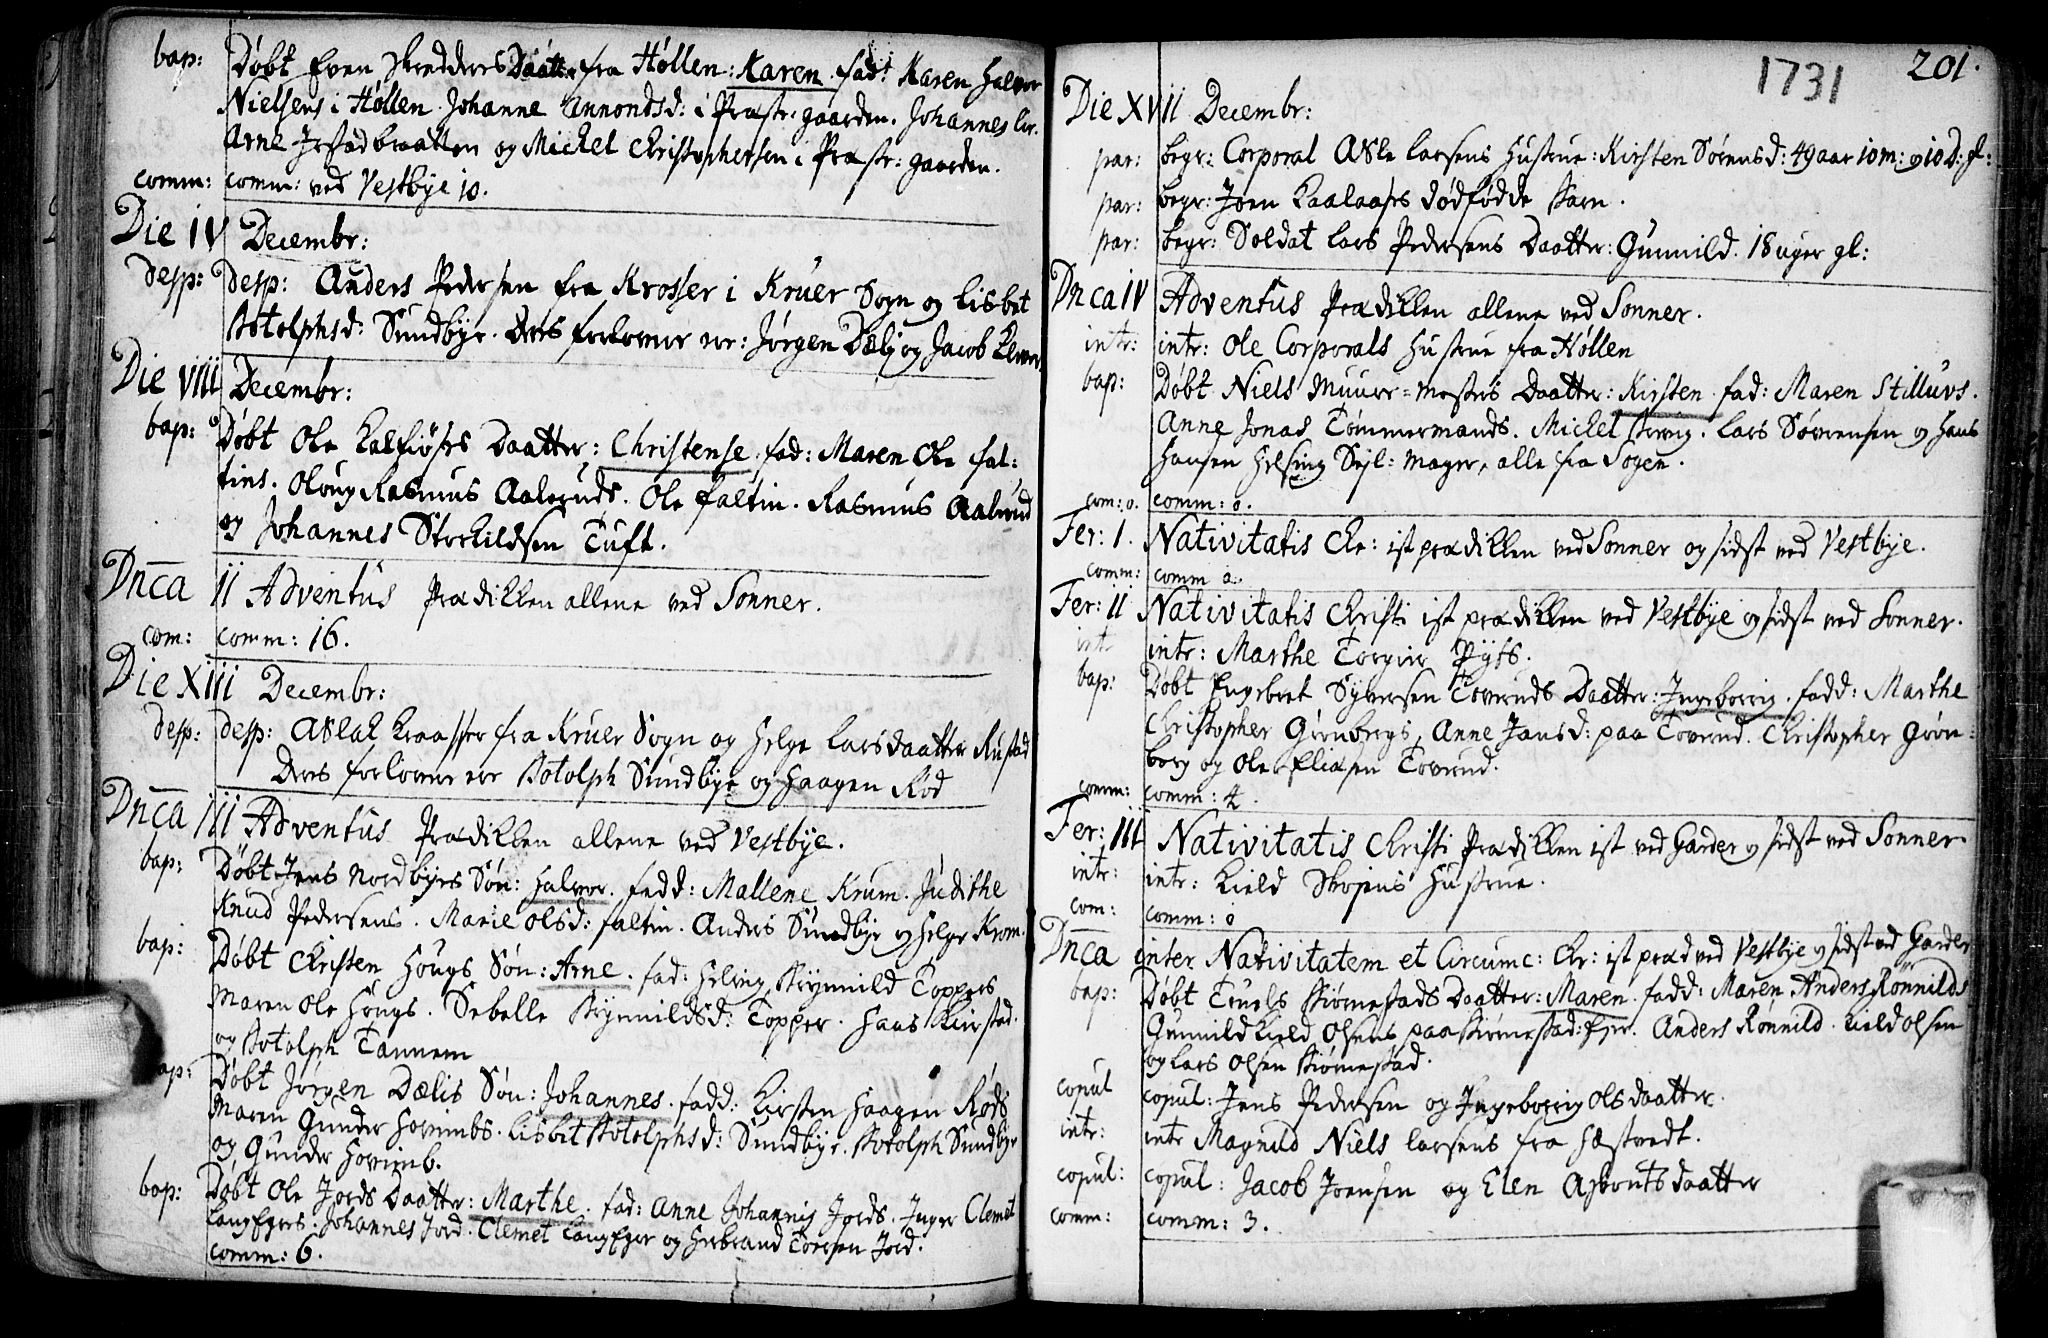 bap: Døbt Even Skredders Daatter fra Høllen: Karen. fad: Karen Halvor
Nielsens i Høllen. Johanne Amondsd: i Præste: gaarden. Johannes
Arne Ifsladbraatten og Michel Christophersen i Præste: gaarden.
comm: comm: ved Vestbye 10.
Die IV Decembr:
desp: desp: Anders Pedersen fra Krosser i Kruer Sogn og Lisbet
Botolphsd: Sundbye. Dres forlover er: Jørgen Dælj og Jacob
Die VIII Decembr:
bap: Døbt Ole Kalfiøses Daatter: Christense. fad: Maren Ole fal:
tins. Oloug Rasmus Aaleruds. Ole faltin. Rasmus Aalerud
og Johannes Storkildsen Tuft.
Dnca II Adventus Prædikken allene ved Sonner.
com: comm: 16.
Die XIII Decembr:
desp: desp: Aslak Kraasser fra Kruer Sogn og Helge Larsdaatter Rustad
Dres forlover er Botolph Sundbye og Haagen Rød
Dnca III Adventus Prædikken allene ved Vestbye.
bap: Døbt Jens Nordbyes Søn: Halvor. fadd: Mallene Krum. Judithe
Knud Pedersens. Marie Olsd: faltin. Anders Sundbye og Helge Krom.
bap: Døbt Christen Hougs Søn: Arne. fad: Helvig Brynnild Toppers
Maren Ole Hougs. Sebelle Brynnildsd: Topper. Hans Kirstad.
og Botolph Tannem
ap: Døbt Jørgen Dælis Søn: Johannes. fadd: Kirsten Haagen Røds
Maren Gunder Hovimbs. Lisbet Botolphsd: Sundbye. Botolph Sundbye
og Gunder Hovimb.
bap: Døbt Ole Jords Daatter: Marthe. fad: Anne Johannis Jords. Inger Clemet
LangEgers. Johannes Jord. Clemet LangEger og Herbrand Toresen Jord.
comm: 6.
1731 201.
Die XVII Decembr:
par: begr: Corporal Asle Larsens Hustrue: Kirsten Sørensd: 49 aar 10 m: og 10 D: gl:
par: begr: Joen Kaalaases dødfødde Barn.
par: begr: Soldat Lars Pedersens Daatter: Gunnild. 18 uger gl:
Dnca IV Adventus Prædikken allene ved Sonner.
intr: intr: Ole Corporals Hustrue fra Høllen
bap: Døbt Niels Muur=mesters Daatter: Kirsten. fad: Maren Stilluvs.
Anne Jonas Tømmermands. Michel. Lars Sørensen og Hans
Hansen Helsing Sejl=mager, alle fra Sogen.
com: o. comm: o.
Fer: I. Nativitatis Chr: ist prædikken ved Sonner og sidst ved Vestbye.
comm: comm o.
Fer: II Nativitatis Christi ist prædikken ved Vestbye og sidst ved Sonner.
intr intr: Marthe Torgier Pyts.
bap: Døbt Engebret Syversen Toveruds Daatter: Ingeborrig. fadd: Marthe
Christopher Grønbergs, Anne Jansd: paa Toverud. Christopher Grøn:
borg og Ole Eliasen Toverud.
comm: comm: 4.
Fer: III Nativitatis Christi Prædikken ist ved Garder og sidst ved Sonner
intr: intr: Kield Skogens Hustrue.
com: comm: o
Dnca inter Nativitatem et Circumc: Chr: ist præd ved Vestbye og sidst ved Garder
bap: Døbt Truels Kiørnestads Daatter: Maren. fadd: Maren Anders Rønnilds
Gunnild Kield Olsens paa Kiørnestad: Ejer. Anders Rønnild. Kield Olsen
og Lars Olsen Kiørnestad.
copul copul: Jens Pedersen og Ingeborrig Olsdaatter.
intr: intr Magnild Niels Larsens fra Hæstvedt.
copul: copul: Jacob Joensen og Elen Asboutsdaatter
comm: comm: 3.